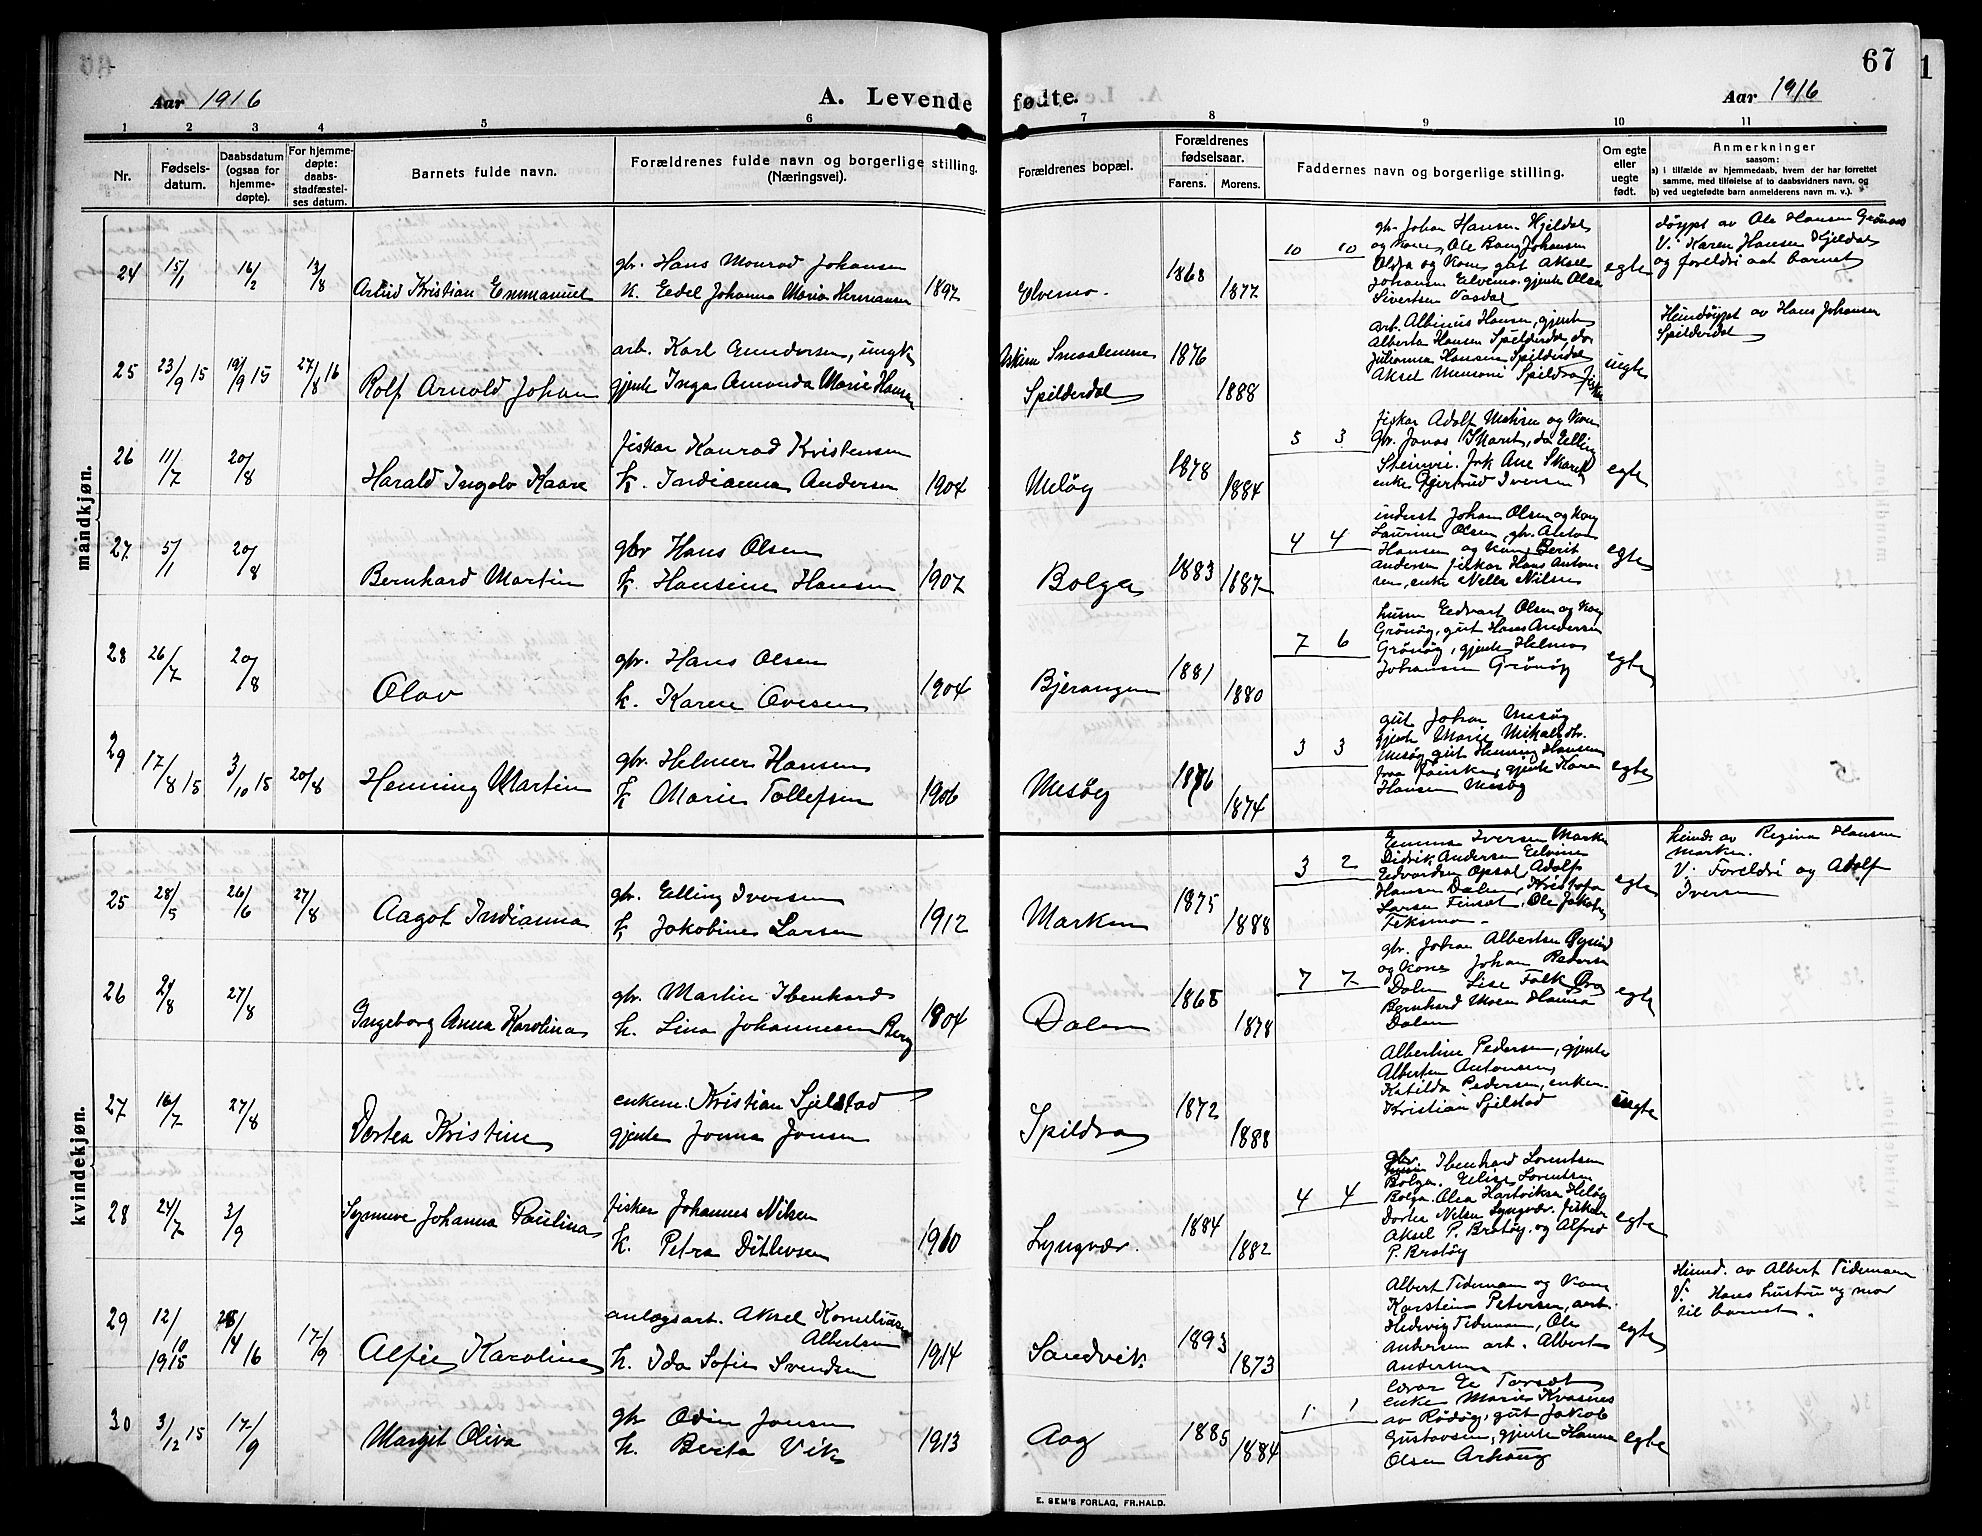 67
Aar 1916
A. Levende fødte.
Aar 1916
1 2 3 4 5 6 7 8 9 10 11
Nr.
Fødsels-
datum.
Daabsdatum
(ogsaa for
hjemme-
døpte).
For hjemme-
døpte:
daabs-
stadfæstel-
ses datum.
Barnets fulde navn.
Forældrenes fulde navn og borgerlige stilling.
(Næringsvei).
Forældrenes bopæl.
Forældrenes
fødselsaar.
Farens. Morens.
Faddernes navn og borgerlige stilling.
Om egte
eller
uegte
født.
Anmerkninger
saasom:
a) i tilfælde av hjemmedaab, hvem der har forrettet
samme, med tilføielse af to daabsvidners navn, og
b) ved uegtefødte barn anmelderens navn m. v.).
mandkjøn.
24 15/1 16/2 13/8
Kristian Emmanuel
gbr. Hans Monrad Johansen
k. Edel Johanna Maria Hermansen 1897
Elvemo. 1868 1877
10 10
gbr. Johan Hansen Kjeldal
og kone, Ole Bang Johansen
og kone gut Aksel
Johansen Elvemo. gjente Olea
Sivertsen Vasdal
egte
døypt av Ole Hansen Grønaas
V: Karen Hansen Kjeldal
og foreldri aat barnet
25 23/9 15 19/9 15 27/8 16
Rolf Arnold Johan
arb. Karl Gundersen, ungk.
gjente Inga Amanda Marie Hansen
Askim Smaalenene
Spilderdal
1876 1888
arb. Albinus Hansen, gjente
Alberta Hansen Spilderdal, do
Julianna Hansen Spilderdal
Aksel Spildra fiskar
uegte
Heimdøypt av Hans Johansen
Spilderdal
26 11/7 20/8
Harald Ingolv Kaare
fiskar Konrad Kristensen
k. Indianna Andersen 1904
Meløy 1878 1884
5 3
fiskar Adolf og kone
gbr. Jonas Skaret, do Elling
Jak Ane Skaret
enke Gjertrud Iversen
egte
27 5/1 20/8
Bernhard Martin
gbr Hans Olsen
k. Hansine Hansen 1907
Bolga 1883 1887
4 4
inderst Johan Olsen og kone
Laurine Olsen, gbr. Anton
Hansen og kone Berit
Andersen fiskar Hans Anton-
sen, enke Nella Nilsen
egte
28 26/7 20/8
Olav
gbr. Hans Olsen
k. Karen Ovesen 1904
Bjerangen 1881 1880
7 6
husm Edvart Olsen og kone
Grønøy, gut Hans Andersen
Grønøy, gjente Helma
Johansen Grønøy
egte
29 17/8 15 3/10 15 20/8
Henning Martin
gbr. Helmer Hansen
k Marie Tollefsen 1906
Mesøy 1876 1874
3 3
gut Johan Mesøy
gjente Marie Mikalsdtr.
Mesøy gut Henning Hansen
gjente Karen
Hansen Mesøy
egte
kvindekjøn.
25 28/5 26/6 27/8
Aagot Indianna
gbr. Elling Iversen
k. Jakobine Larsen 1912
Marken 1875 1888
3 2
Emma Iversen Marken
Didrik Andersen Edvine
Edvardsen Opsal, Adolf
Hansen Dalen, Kristofa
Larsen Finset, Ole Jakobs.
Teksmo.
egte
heimd. av Regina Hansen
Marken.
V: Foreldri og Adolf
Iversen
26 21/8 27/8
Ingeborg Anna Karolina
gbr. Martin Ibenhard
k. Lina Johannesen Berg 1904
Dalen 1868 1878
7 7
gbr. Johan Albertsen
og kone Johan Pedersen
Dalen Lise Falk
Bernhard Moen Hanna
Dalen
egte
27 16/7 27/8
Dortea Kristine
enkem. Kristian Sjelstad
gjente Jonna Jonsen
Spildra 1872 1888
Albertine Pedersen, gjente
Alberten Antonsen,
Katilda Pedersen, enkem.
Kristian Sjelstad
uegte
28 24/7 3/9
Synneve Johanna Paulina
fiskar Johannes Nilsen
k. Petra Ditlevsen 1910
Lyngvær. 1884 1882
4 4
gbr. Ibenhard Lorentsen
Bolga. Elise Lorentsen
Bolga. Olea Hartviksen Meløy
Dortea Nilsen Lyngvær. fiskar
Aksel P. Brotøy. og Alfred
P. Brotøy
egte
29 12/10 1915 /4 16 17/9
Alfie Karoline
anlægsarb. Aksel Kornelius
Albertsen
k. Ida Sofie Svendsen 1914
Sandvik. 1893 1873
Albert Tidemann og kone
Karstein Petersen, arb.
Hedevig Tidemann, Ole
Andersen arb. Albert
Andersen
egte
Heimd. av Albert Tidemann
V: Hans hustru og mor
til barnet.
30 3/12 15 17/9
Margit Oliva
gbr Odin Jensen
k. Berita Vik 1913
Aag 1885 1884
1 1
lærar E Torset
enke Marie Kvasnes
av Rødøy, gut Jakob
Gustavsen, gjente Hanna
Olsen
egte
E. SEM'S FORLAG, FR.HALD.